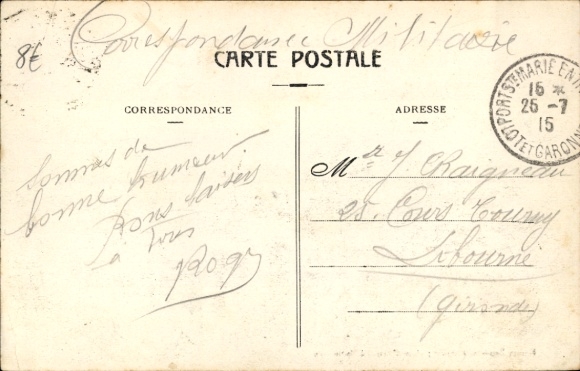 8€
Correspondance Militaire
CARTE POSTALE
CORRESPONDANCE
ADRESSE
PORT-STE MARIE
16 *
25 - 7
15
LOT ET GARONNE
Sommes de
bonne humeur.
Bons baisers
à tous
Roger
Mr J. Raigneau
28. Cours Tourny
Libourne
(Gironde)